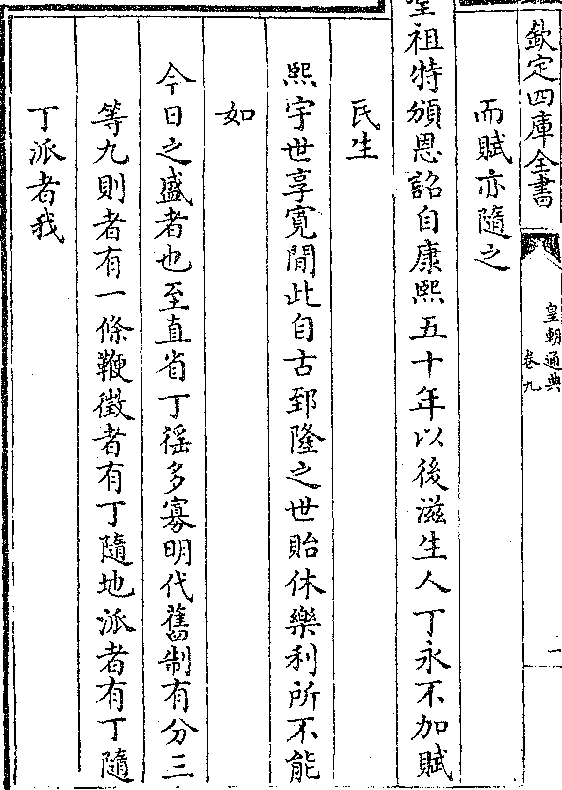 欽定四庫全書
皇朝通典
卷九
一
而賦亦隨之
聖祖特頒恩詔自康熙五十年以後滋生人丁永不加賦
民生
熙宇世享寛閒此自古郅隆之世貽休樂利所不能
如
今日之盛者也至直省丁徭多寡明代舊制有分三
等九則者有一條鞭徵者有丁隨地派者有丁隨
丁派者我